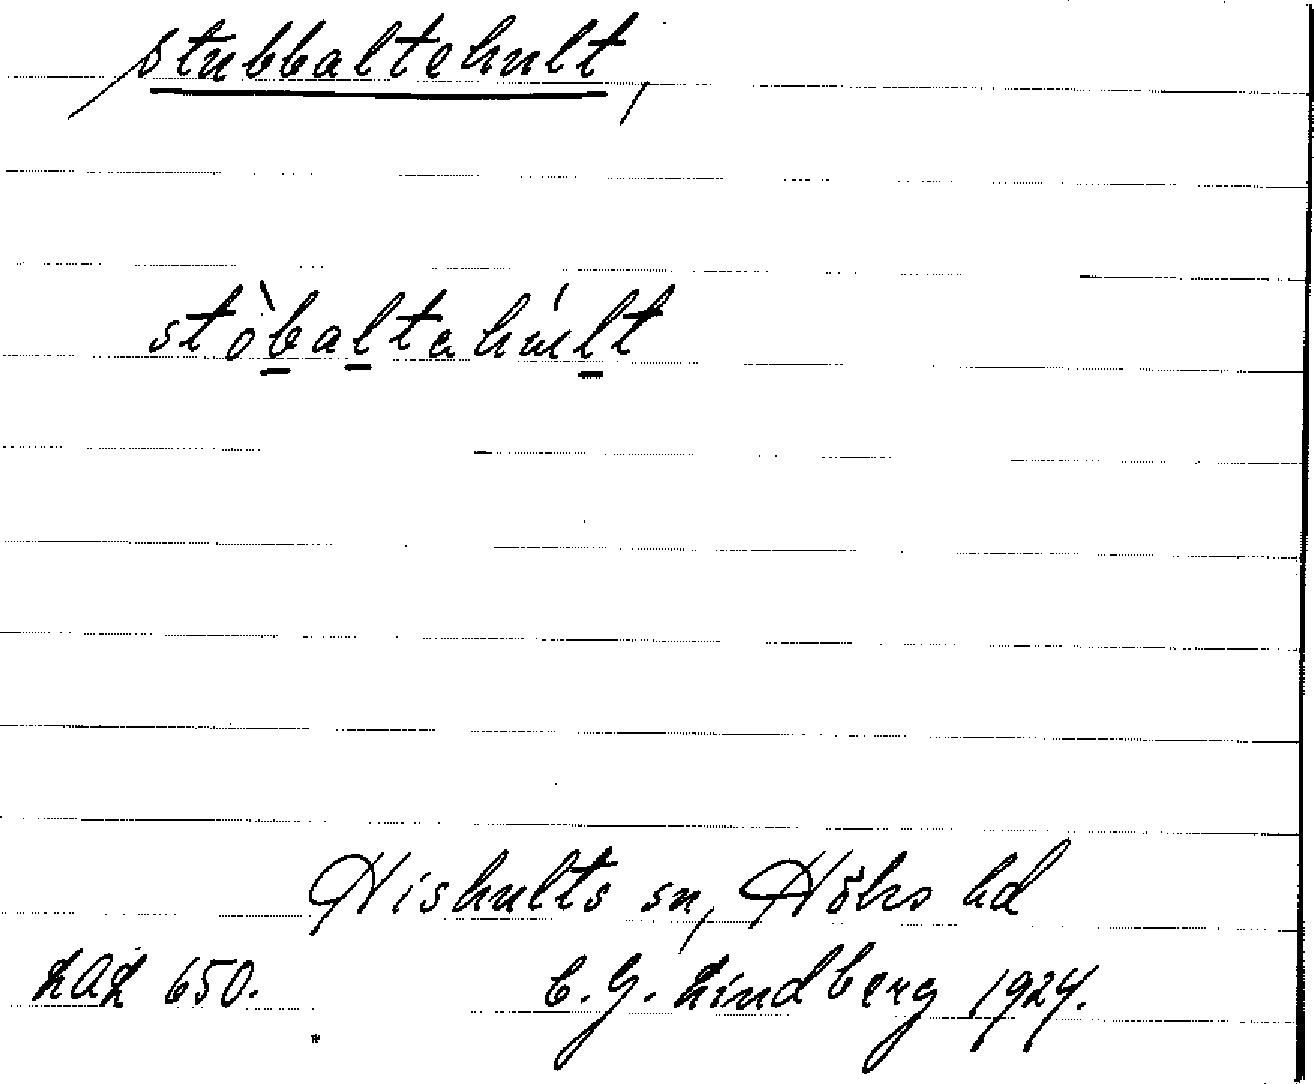 stubbaltehult,
stòbaltahúlt
Hishults sn, Höks hd
LAL 650. C.G. Lindberg 1924.